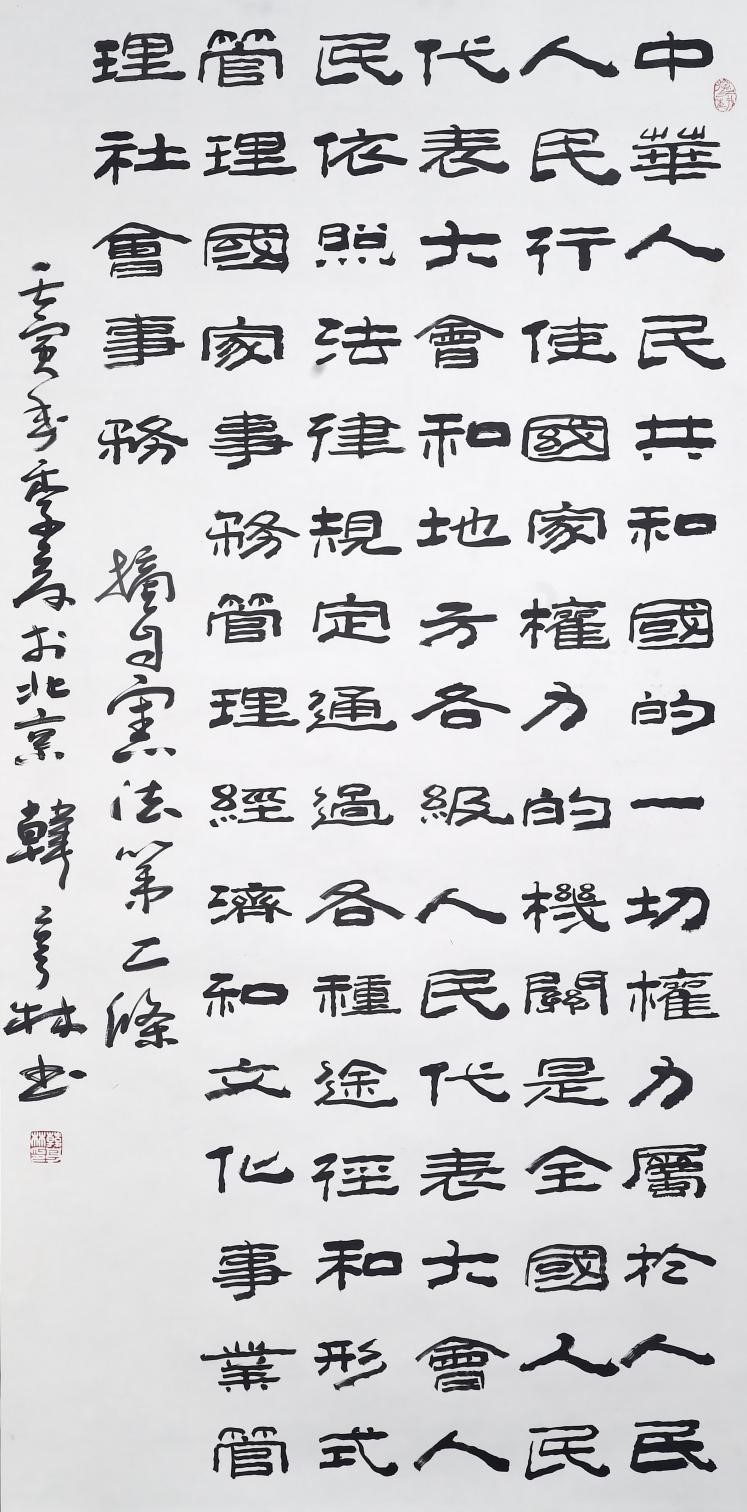 中華人民共和國的一切權力屬於人民
人民行使國家權力的機關是全國人民
代表大會和地方各級人民代表大會人
民依照法律規定通過各種途徑和形式
管理國家事務管理經濟和文化事業管
理社會事務 摘自憲法第二條
壬寅季於北京 韓亨林書